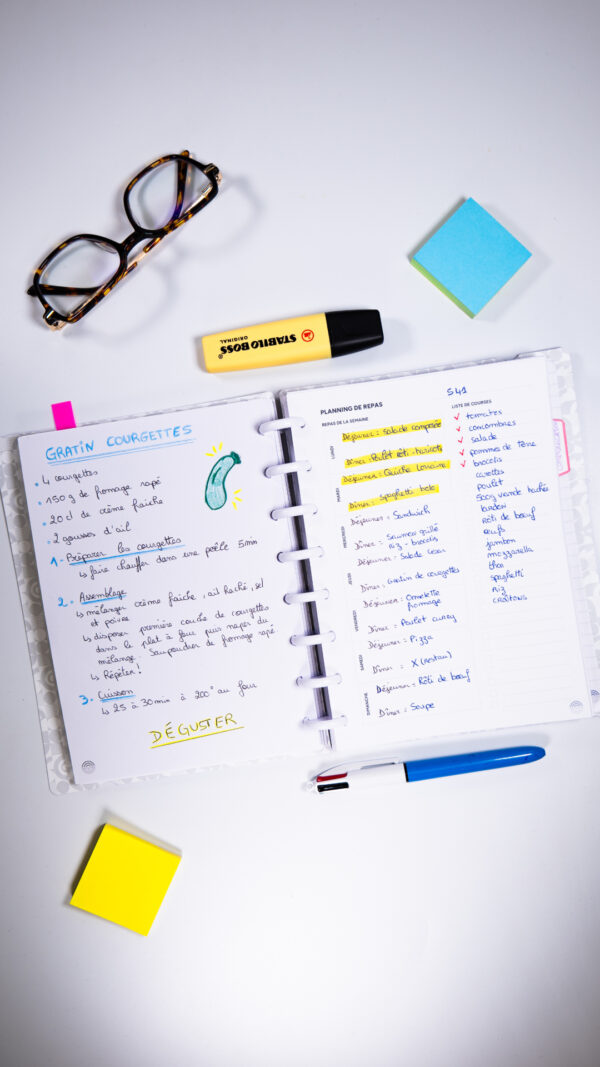 STABILO BOSS
ORIGINAL
GRATIN COURGETTES
4 courgettes
150 g de fromage rapé
20 cl de crème fraiche
2 gousses d'ail
1 - Préparer les courgettes
↳ faire chauffer dans une poêle 5mn
2. Assemblage
↳ mélanger crème fraiche, ail haché, sel
et poivre
↳ disposer première couche de courgettes
dans le plat à four puis napper du
mélange. Saupoudrer de fromage rapé
↳ Répéter!
3 - Cuisson
↳ 25 à 30 min à 200° au four
DÉGUSTER
S41
PLANNING DE REPAS
REPAS DE LA SEMAINE
LUNDI
Déjeuner : Salade composée
Dîner : Poulet rôti - haricots
MARDI
Déjeuner : Quiche Lorraine
Dîner : spaghetti bolo
MERCREDI
Déjeuner : Sandwich
Dîner : Saumon grillé
riz - brocolis
JEUDI
Déjeuner : Salade César
Dîner : Gratin de courgettes
VENDREDI
Déjeuner : Omelette
fromage
Dîner : Poulet curry
SAMEDI
Déjeuner : Pizza
Dîner : X (restau)
DIMANCHE
Déjeuner : Rôti de bœuf
Dîner : Soupe
LISTE DE COURSES
tomates
concombres
salade
pommes de terre
brocolis
carottes
poulet
500g viande hachée
lardons
rôti de bœuf
œufs
jambon
mozzarella
spaghetti
riz
croûtons